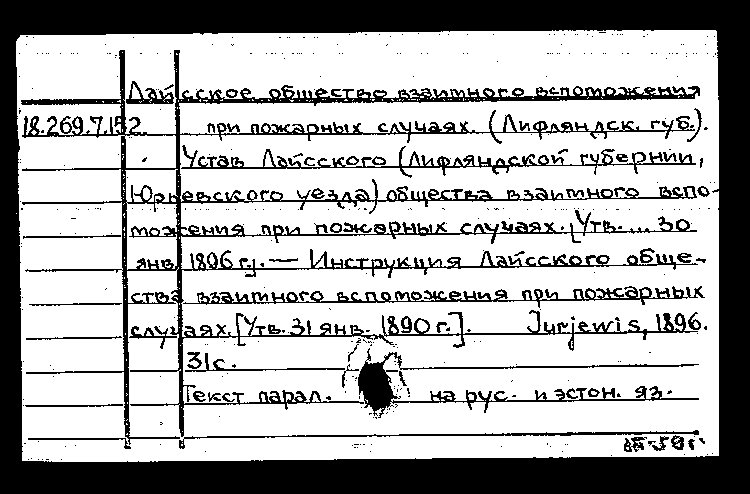 Лайсское общество взаимного вспоможения
18.269.7.152. при пожарных случаях. (Лифляндск. губ.).
Устав Лайсского (Лифляндской губернии,
Юрьевского уезда) общества взаимного вспо-
можения при пожарных случаях. [Утв. ... 30
янв. 1896 г.]. — Инструкция Лайсского обще-
ства взаимного вспоможения при пожарных
случаях. [Утв. 31 янв. 1890 г.]. Jurjewis, 1896.
31 с.
Текст парал. на рус. и эстон. яз.